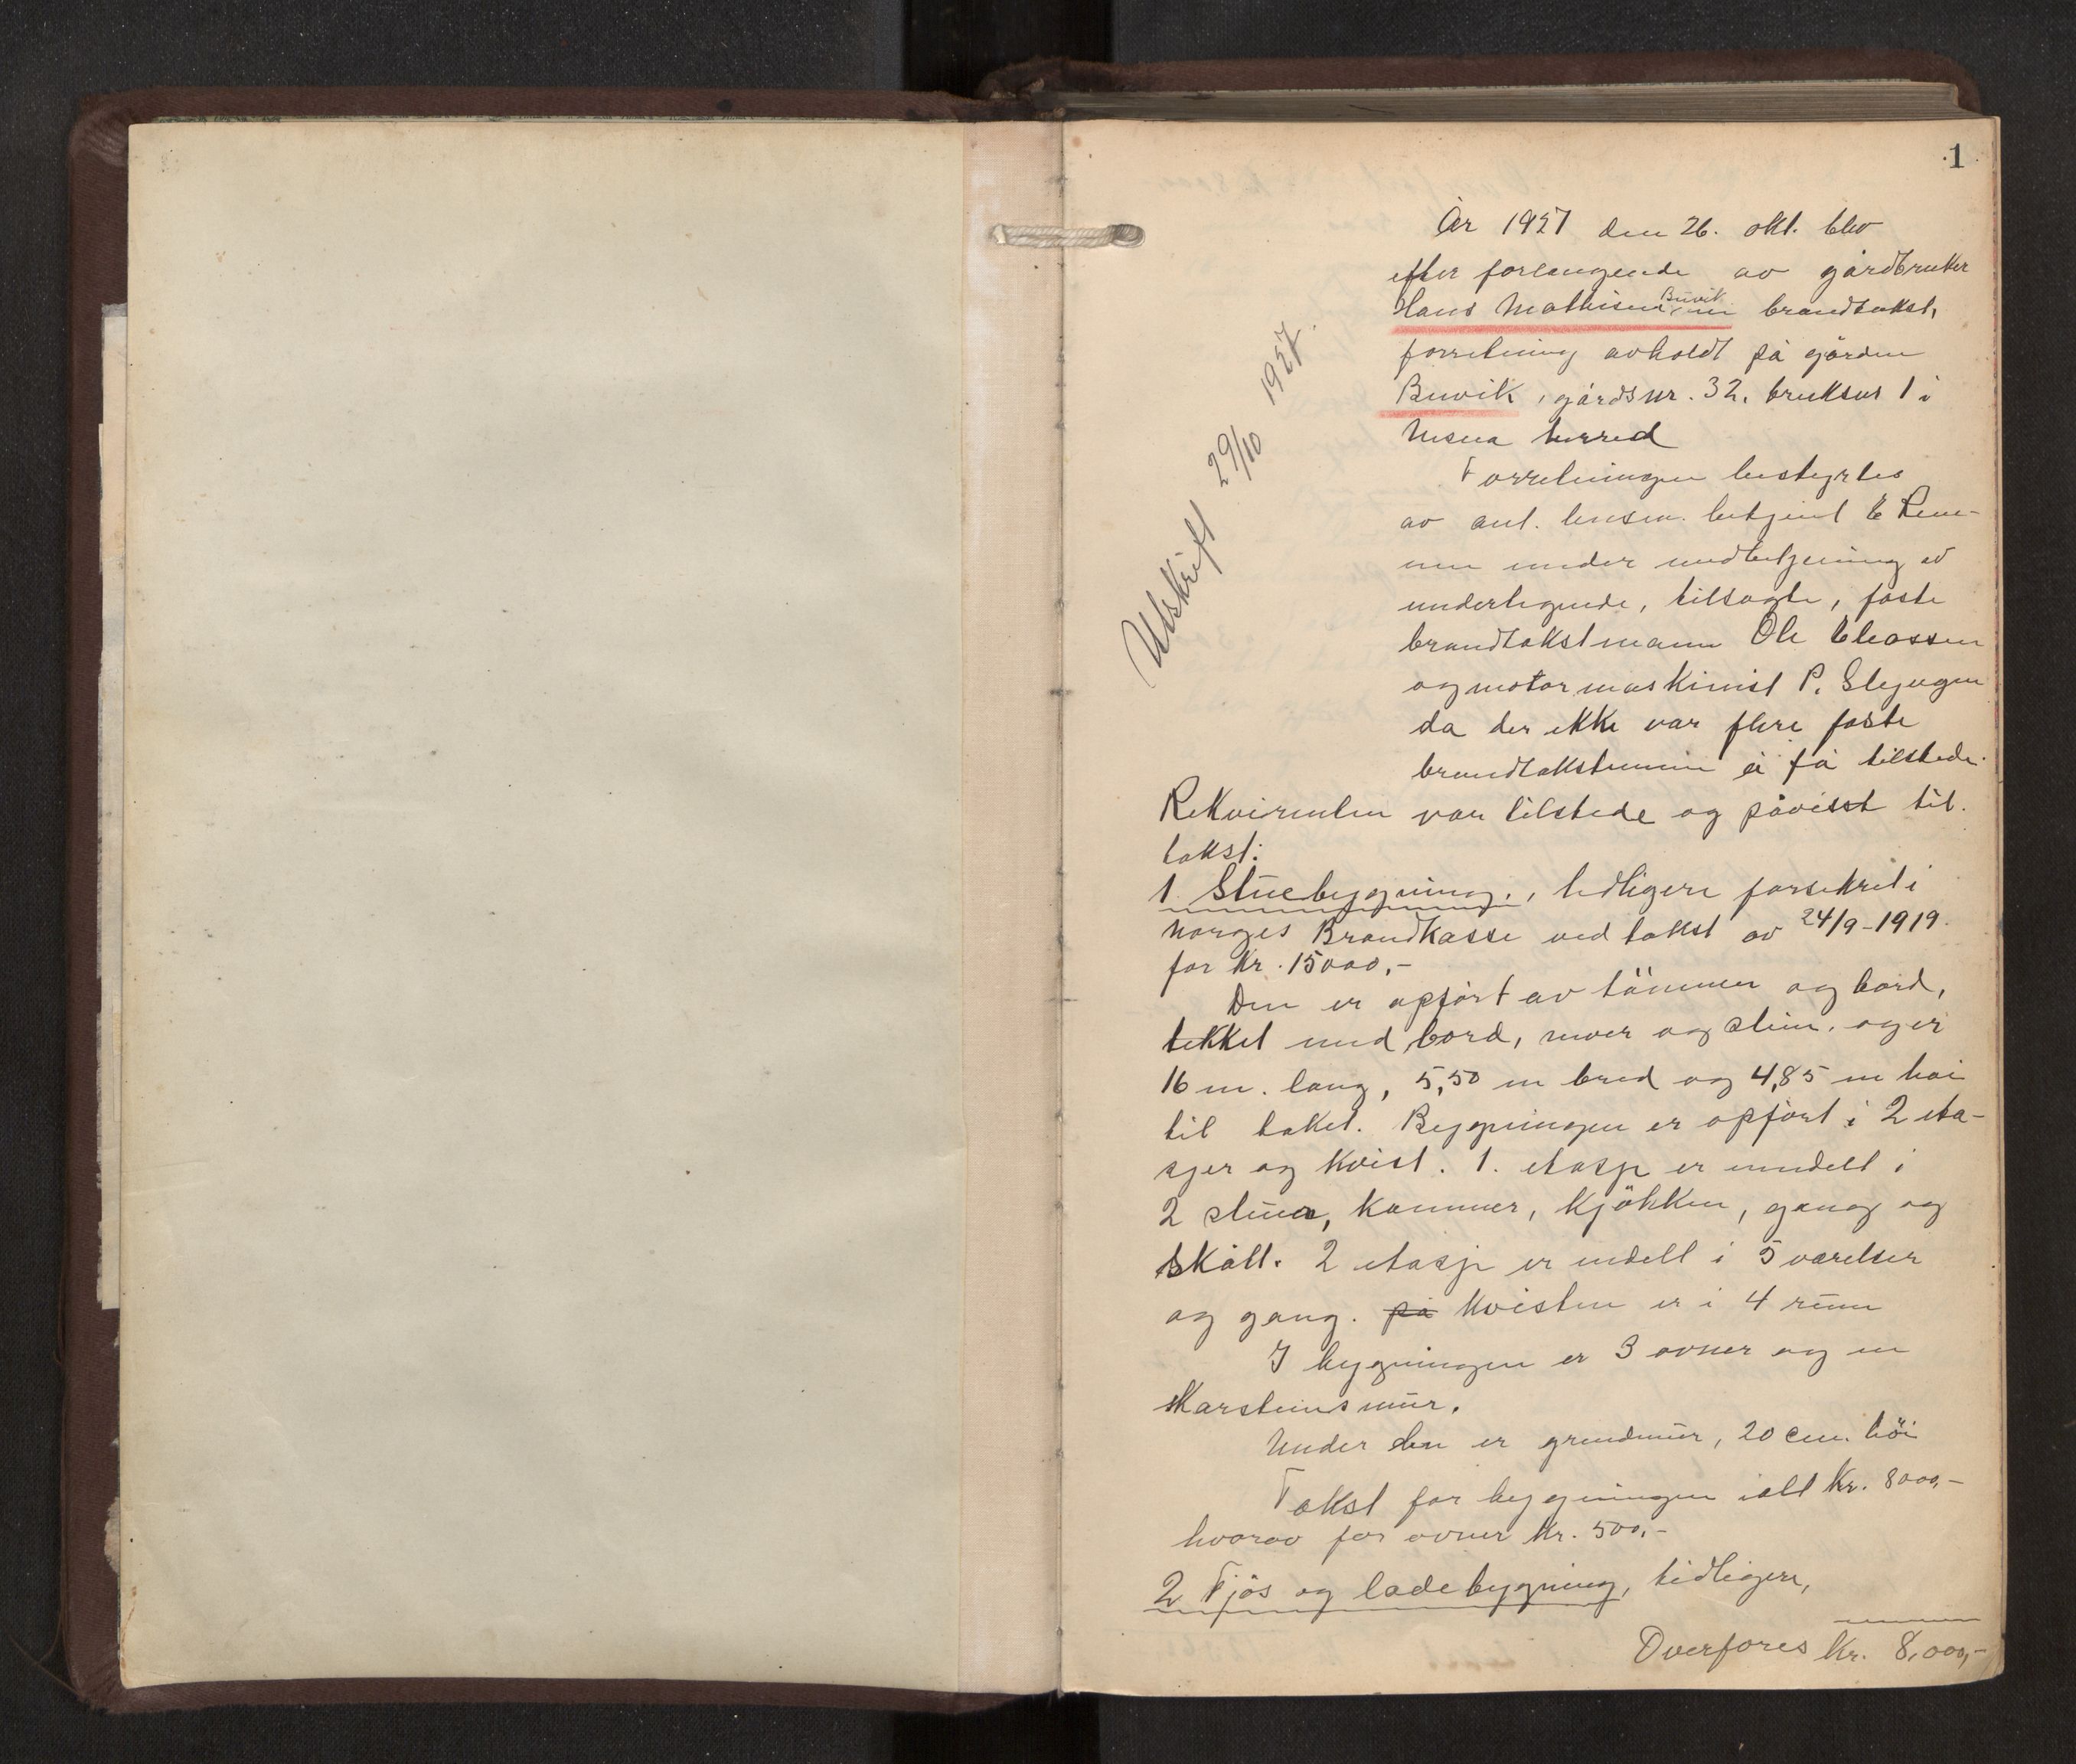 1
År 1927 den 26. okt. blev
efter forlangende av gårdbruker
Hans Mathisen Buvik brandtakst,
forretning avholdt på gården
Buvik, gårdsnr. 32, bruksnr 1 i
Nesna herred
Utskrift 29/10 1927.
Forretningen bestyrtes
av ant. lensm. betjent E
under medbetjening av
undertegnede, tilsagte, faste
brandtakstmann Ole Eliassen
og motormaskinist P.
da der ikke var flere faste
brandtakstmenn å få tilstede.
Rekvirenten var tilstede og påviste til.
takst:
1 Stuebygning, tidligere forsikret i
Norges Brandkasse ved takst av 24/9-1919.
for kr. 15000,-
Den er opført av tömmer og bord,
tekket med bord, never og stein, og er
16 m. lang, 5,50 m bred og 4,85 m høi
til taket. Bygningen er opført i 2 eta-
sjer og kvist. 1. etasje er inndelt i
2 stuer, kammer, kjökken, gang og
skott. 2 etasje er indelt i 5 værelser
og gang. på Kvisten er i 4 rum
I bygningen er 3 ovner og en
skorsteinsmur.
Under den er grundmur, 20 cm. höi
Takst for bygningen ialt kr. 8000,-
hvorav for ovner kr. 500,-
2 Fjös og ladebygning, tidligere,
Overføres kr. 8,000,-